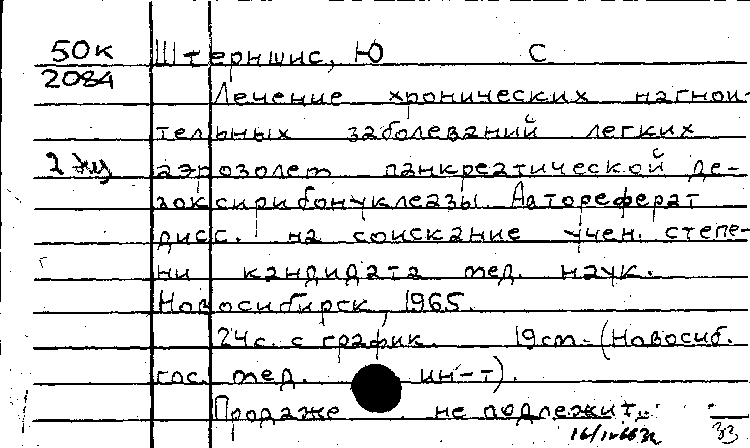 50к Штерншис, Ю С
2084
Лечение хронических нагнои-
тельных заболеваний легких
2 экз аэрозолем панкреатической де-
зоксирибонуклеазы. Автореферат
дисс. на соискание учен. степе-
ни кандидата мед. наук.
Новосибирск, 1965.
24с. с график. 19см. (Новосиб.
гос. мед. ин-т).
Продаже не подлежит.
33